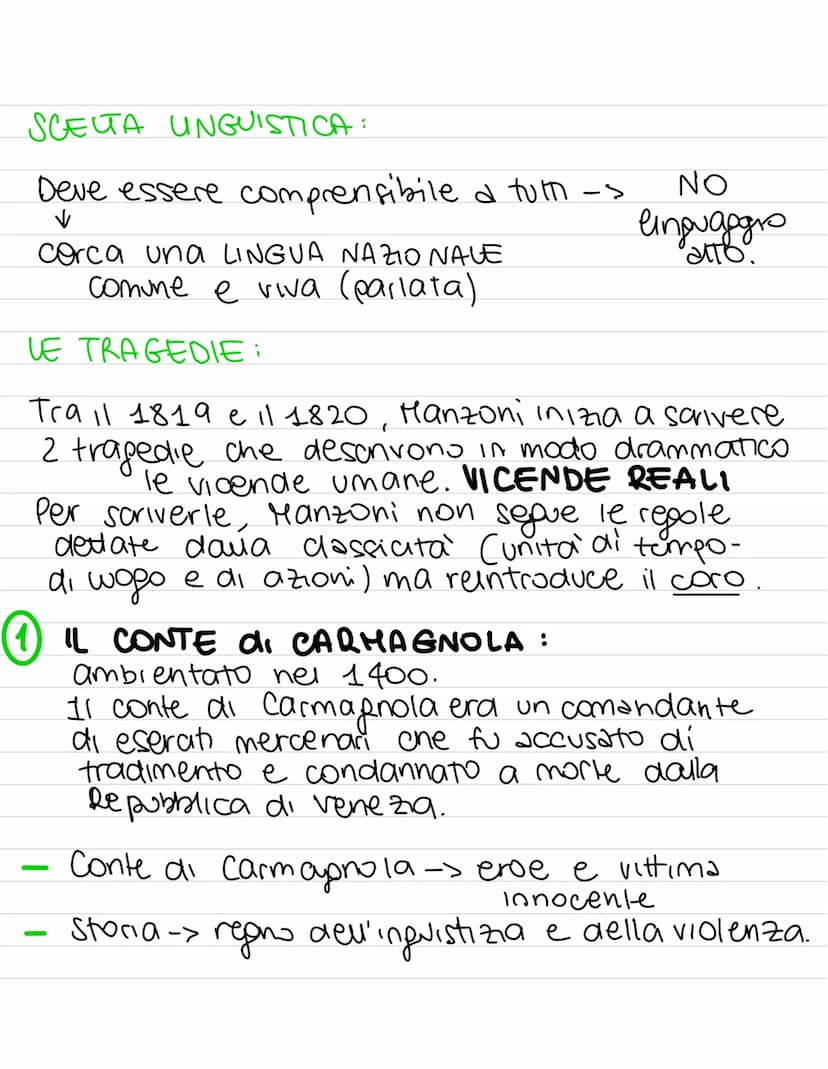 SCELTA LINGUISTICA:
Deve essere comprensibile a tutti -> NO
linguaggio
alto.
↓
cerca una LINGUA NAZIONALE
comune e viva (parlata)
LE TRAGEDIE:
Tra il 1819 e il 1820, Manzoni inizia a scrivere
2 tragedie che descrivono in modo drammatico
le vicende umane. VICENDE REALI
Per scriverle, Manzoni non segue le regole
dettate dalla classicità (unità di tempo-
di luogo e di azioni) ma reintroduce il coro.
1 IL CONTE di CARMAGNOLA:
ambientato nel 1400.
Il conte di Carmagnola era un comandante
di eserciti mercenari che fu accusato di
tradimento e condannato a morte dalla
Repubblica di Venezia.
- Conte di Carmagnola -> eroe e vittima
innocente
- Storia -> regno dell'ingiustizia e della violenza.